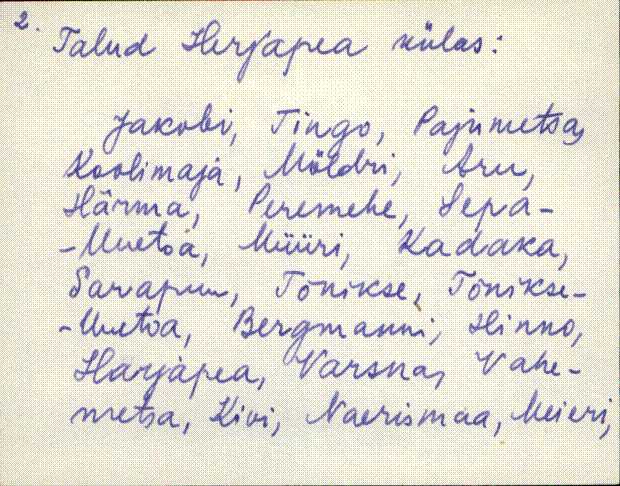 2.
Talud Herjapea külas:
Jakobi, Tingo, Pajumetsa,
Koolimaja, Möldri, Aru,
Härma, Peremehe, Sepa-
-Uuetoa, Müüri, Kadaka,
Sarapuu, Tõnikse, Tõnikse-
-Uuetoa, Bergmanni, Hinno,
Harjapea, Varsna, Vahe-
metsa, Kivi, Naerismaa, Meieri,